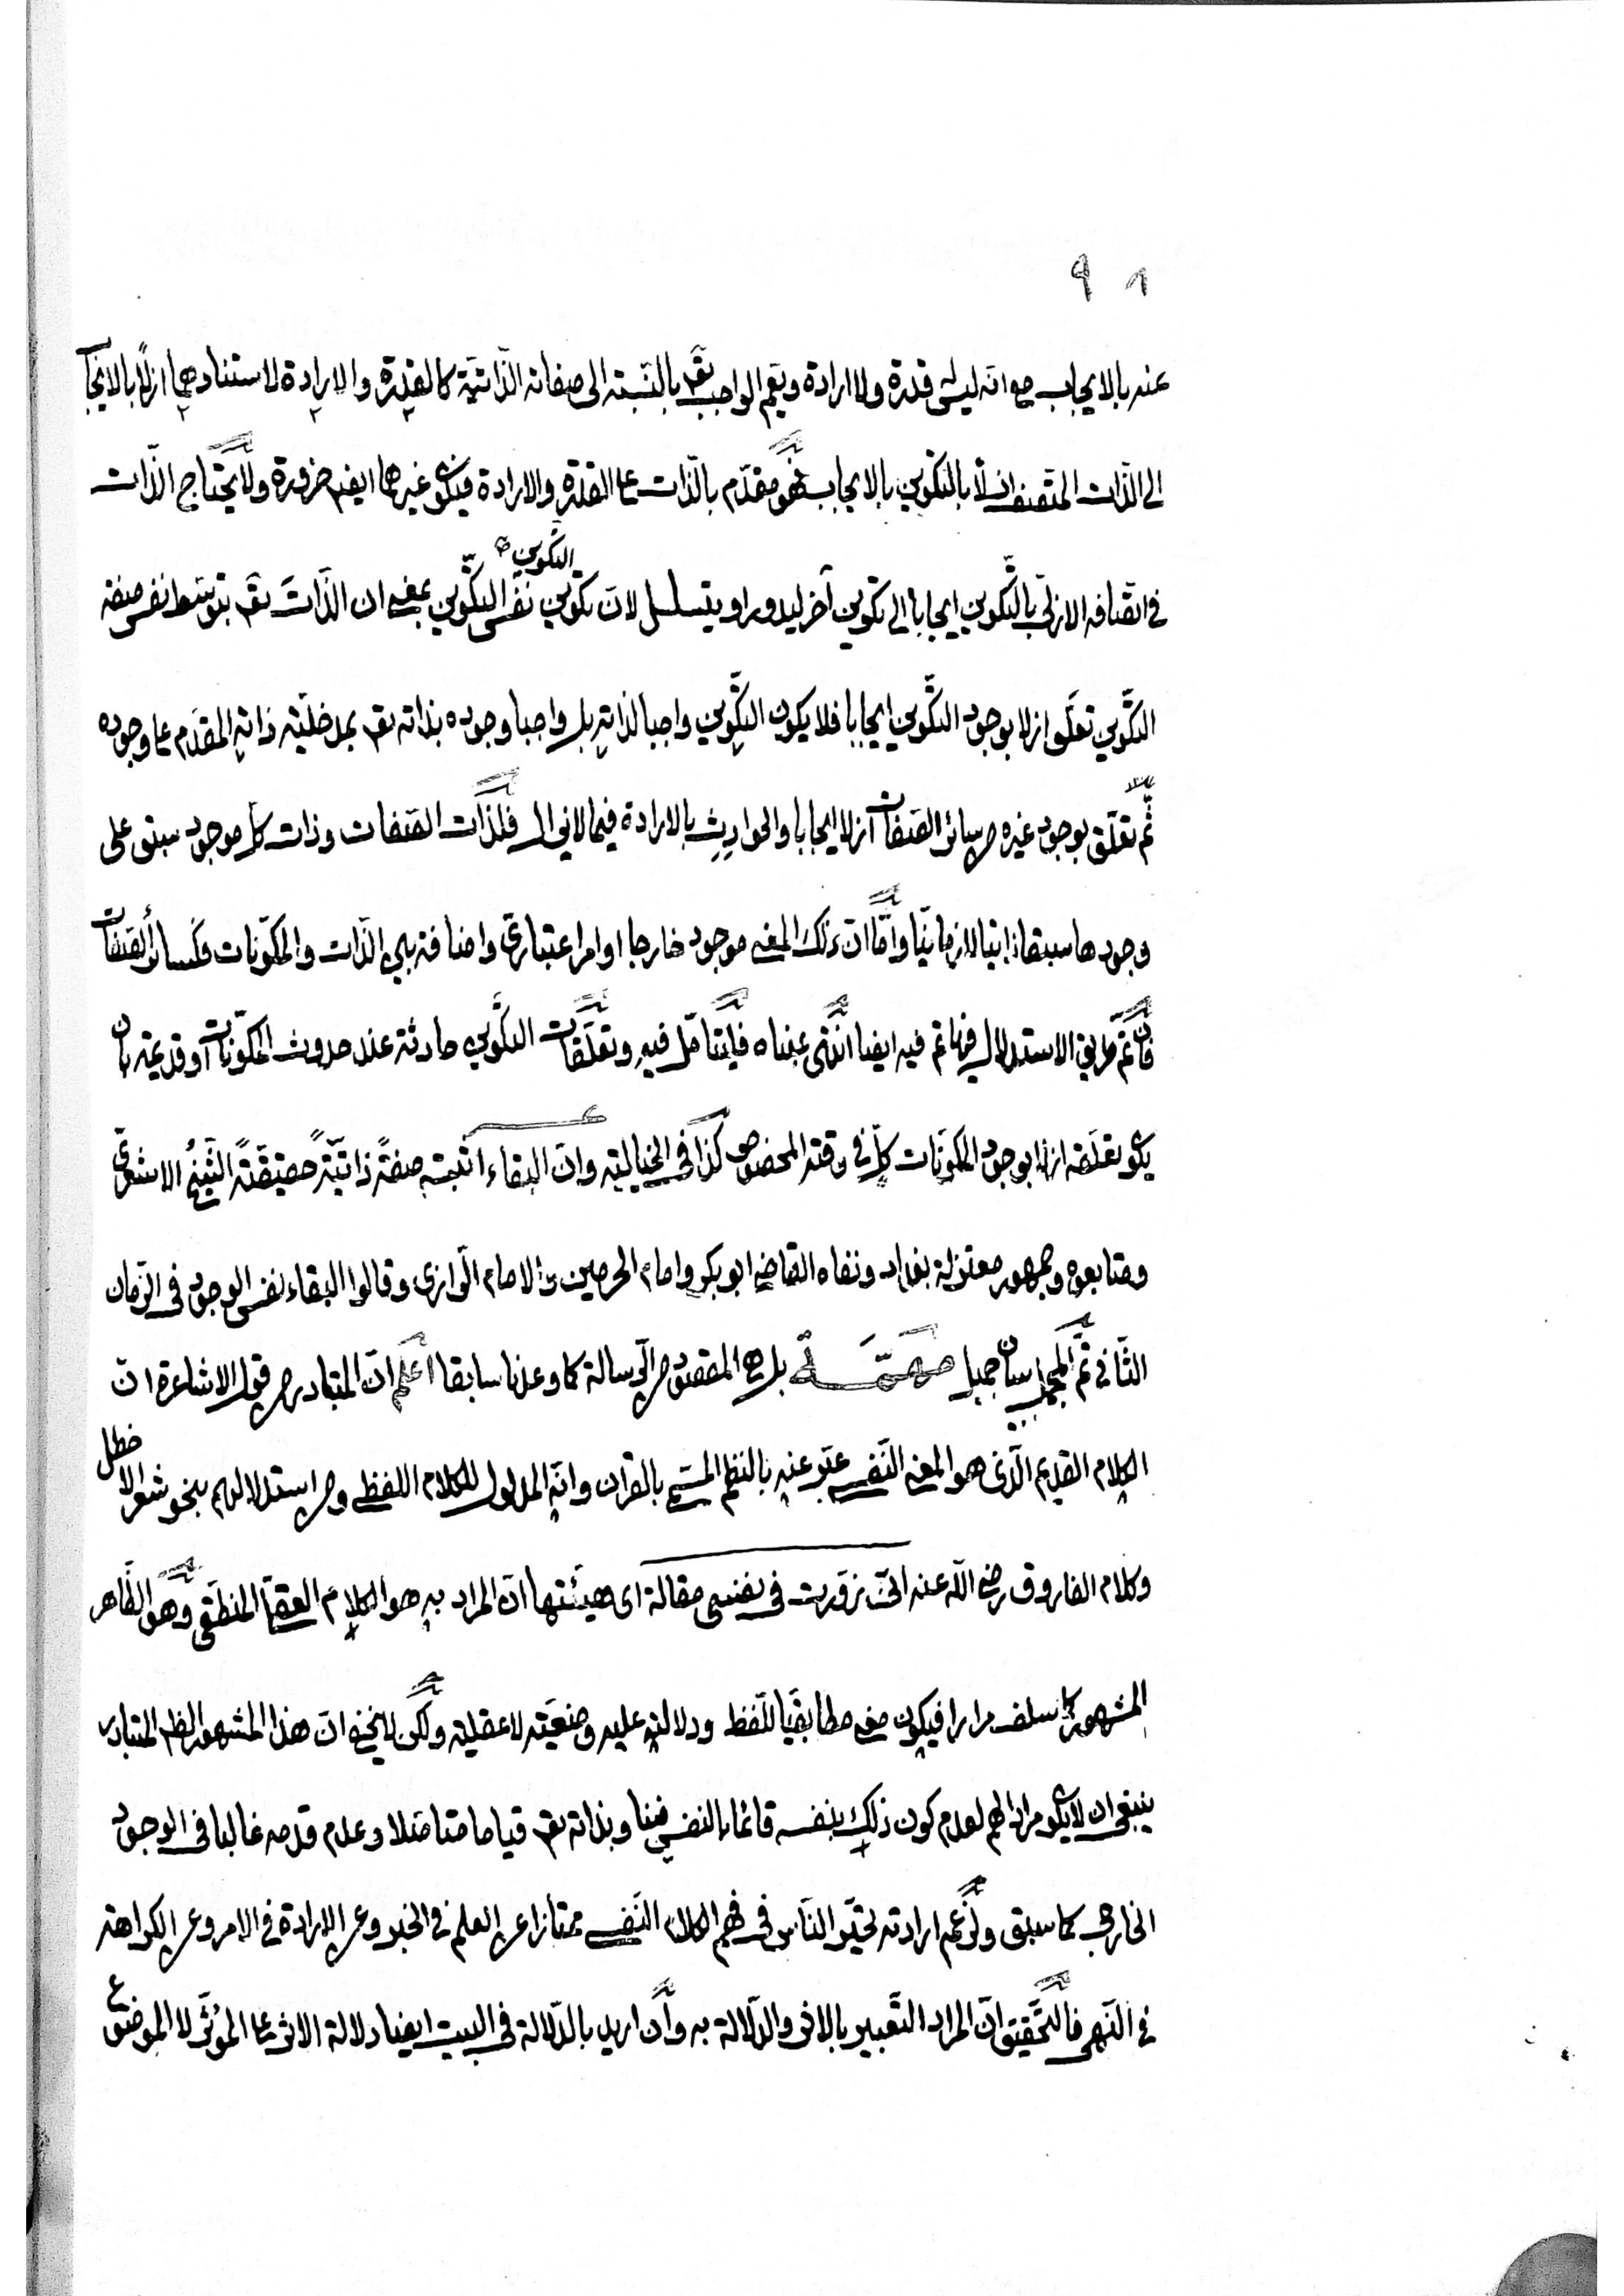 ٩ ٨
عنه بالايجاب مع انه ليس قدرة ولا ارادة ويعم الواجب تع بالنسبة الى صفاته الذاتية كالقدرة والارادة لاستنادهما ازلا بالايجاب
الى الذات المتصف ازلا بالتكوين بالايجاب فهو مقدم بالذات على القدرة والارادة فيكون غيرهما ايضا ضرورة ولا يحتاج الذات
في اتصافه الازلي بالتكوين ايجابا الى تكوين آخر ليدور او يتسلسل لان تكوين التكوين نفس التكوين بمعنى ان الذات تع بتوسط نفس صفة
التكوين تعلق ازلا بوجود التكوين ايجابا فلا يكون التكوين واجبا لذاته بل واجبا وجوده بذاته تع بمدخلية ذاته المقدم على وجوده
ثم تعلق بوجود غيره من سائر الصفات ازلا ايجابا والحوادث بالارادة فيما لا يزال فلذات الصفات وذات كل موجود سبق على
وجودها سبقا ذاتيا لا زمانيا واما ان ذلك المعنى موجود خارجا او امر اعتباري واضافة بين الذات والمكونات فكسائر الصفات
فان تم طريق الاستدلال فيها تم فيه ايضا انتهى فليتامل فيه وتعلقات التكوين حادثة عند حدوث المكونات او قديمة بان
يكون تعلقه ازلا بوجود المكونات كل في وقته المخصوص كذا في الخيالية وان البقاء اثبته صفة ذاتية حقيقة الشيخ الاشعري
ومتابعوه وجمهور معتزلة بغداد ونفاه القاضي ابو بكر وامام الحرمين والامام الرازي وقالوا البقاء نفس الوجود في الزمان
الثاني ثم الجميل مهمة بل هي المقصود من الرسالة كما وعدنا سابقا اعلم ان المتبادر من قول الاشاعرة ان
الكلام القديم الذي هو المعنى النفسي عبر عنه بالنظم المسمى بالقرآن وانه المدلول للكلام اللفظي ومن استدلالهم بنحو شعر الاخطل
وكلام الفاروق رضي الله عنه اني زورت في نفسي مقالة اي هيئتها ان المراد به هو الكلام العقلي المنطقي وهو الظاهر
المشهور كما سلف مرارا فيكون معنى مطابقيا للفظ ودلالته عليه وضعية لا عقلية ولكن لا يخفى ان هذا المشهور الظاهر المتبادر
ينبغي ان لا يكون مرادا لهم لعدم كون ذلك بنفسه قائما بالنفس فينا وبذاته تع قياما متأصلا وعدم قدمه غالبا في الوجود
الخارجي كما سبق ولزعم ارادته تحير الناس في فهم الكلام النفسي ممتازا عن العلم في الخبر وعن الارادة في الامر وعن الكراهة
في النهي فالتحقيق ان المراد التعبير بالاثر والدلالة به وان اريد بالدلالة في البيت ايضا دلالة الاثر على المؤثر لا الموضوع